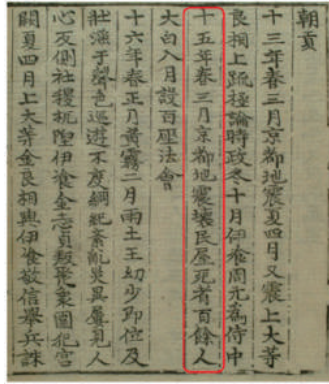 朝貢
十三年春三月京都地震夏四月又震上大等
良相上䟽極論時政冬十月伊飡周元爲侍中
十五年春三月京都地震壞民屋死者百餘人
太白入月設百座法會
十六年春正月黃霧二月雨土王幼少即位及
壯滛于聲色巡遊不度綱紀紊亂災異屢見人
心反側社稷杌隉伊飡金志貞叛聚衆圍犯宮
闕夏四月上大等金良相與伊飡敬信舉兵誅